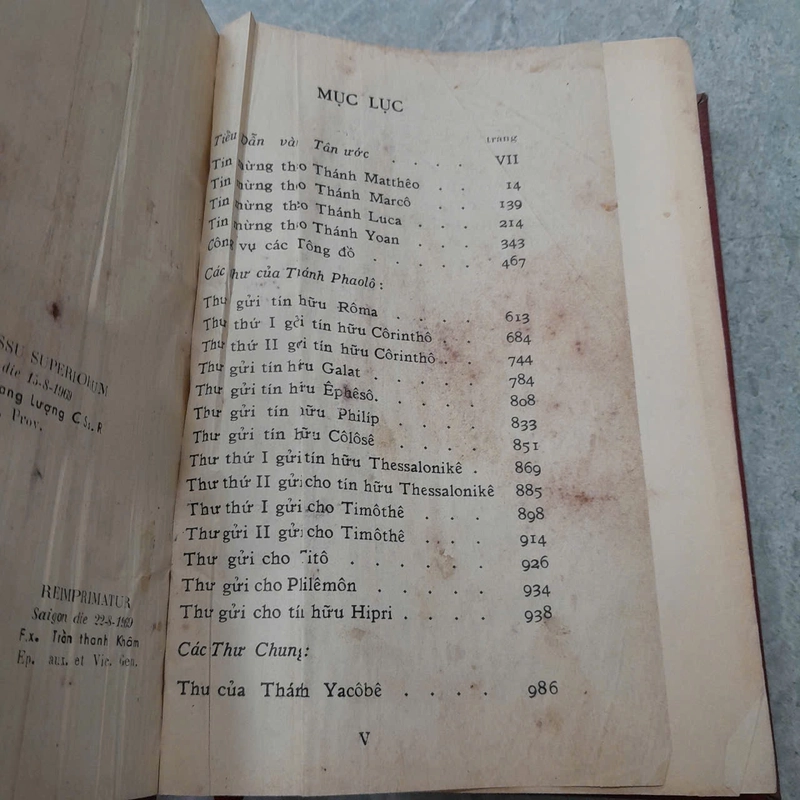 SSU SUPERIORUM
die 15-8-1969
ang Lượng C Ss.R
Prov.
REIMPRIMATUR
Saigon die 22-8-1969
F.x. Trần thanh Khâm
Ep. aux. et Vic. Gen.
MỤC LỤC
trang
Tiểu dẫn vài Tân ước . . . . VII
Tin mừng theo Thánh Matthêo . . 14
Tin mừng theo Thánh Marcô . . 139
Tin mừng theo Thánh Luca . . . 214
Tin mừng theo Thánh Yoan . . . 343
Công vụ các Tông đồ . . . . . 467
Các thư của Thánh Phaolô :
Thư gửi tín hữu Rôma . . . . 613
Thư thứ I gởi tín hữu Côrinthô . . 684
Thư thứ II gởi tín hữu Côrinthô . . 744
Thư gửi tín hữu Galat . . . . 784
Thư gửi tín hữu Êphêsô. . . . . 808
Thư gửi tín hữu Philip . . . . 833
Thư gửi tín hữu Côlôsê . . . . 851
Thư thứ I gửi tín hữu Thessalonikê . 869
Thư thứ II gửi cho tín hữu Thessalonikê 885
Thư thứ I gửi cho Timôthê . . . 898
Thư gửi II gửi cho Timôthê . . . 914
Thư gửi cho Titô . . . . . 926
Thư gửi cho Philêmôn . . . . 934
Thư gửi cho tín hữu Hipri . . . . 938
Các Thư Chung:
Thư của Thánh Yacôbê . . . . 986
V